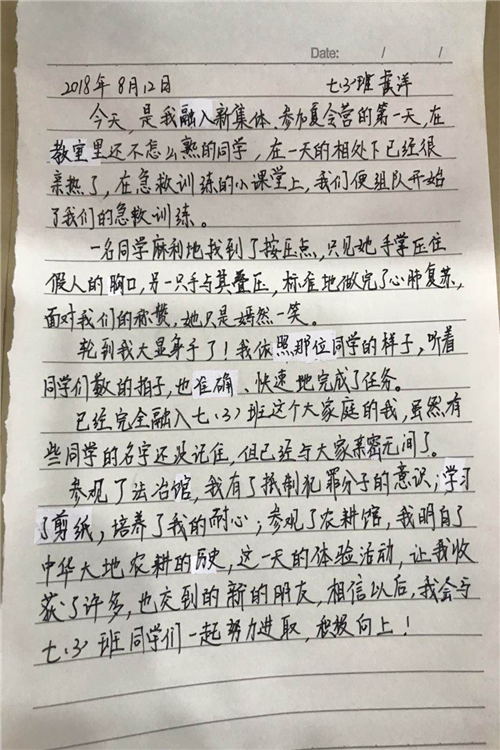 Date: / /
2018年8月12日 七.(3)班 龚洋
今天,是我融入新集体、参加夏令营的第一天,在
教室里还不怎么熟的同学,在一天的相处下已经很
亲热了,在急救训练的小课堂上,我们便组队开始
了我们的急救训练。
一名同学麻利地找到了按压点,只见她手掌压住
假人的胸口,另一只手与其叠压,标准地做完了心肺复苏,
面对我们的称赞,她只是嫣然一笑。
轮到我大显身手了!我依照那位同学的样子,听着
同学们数的拍子,也准确、快速地完成了任务。
已经完全融入七.(3)班这个大家庭的我,虽然有
些同学的名字还没记住,但已经与大家亲密无间了。
参观了法治馆,我有了抵制犯罪分子的意识;学习
了剪纸,培养了我的耐心;参观了农耕馆,我明白了
中华大地农耕的历史,这一天的体验活动,让我收
获了许多,也交到的新的朋友,相信以后,我会与
七.(3)班同学们一起努力进取,积极向上!